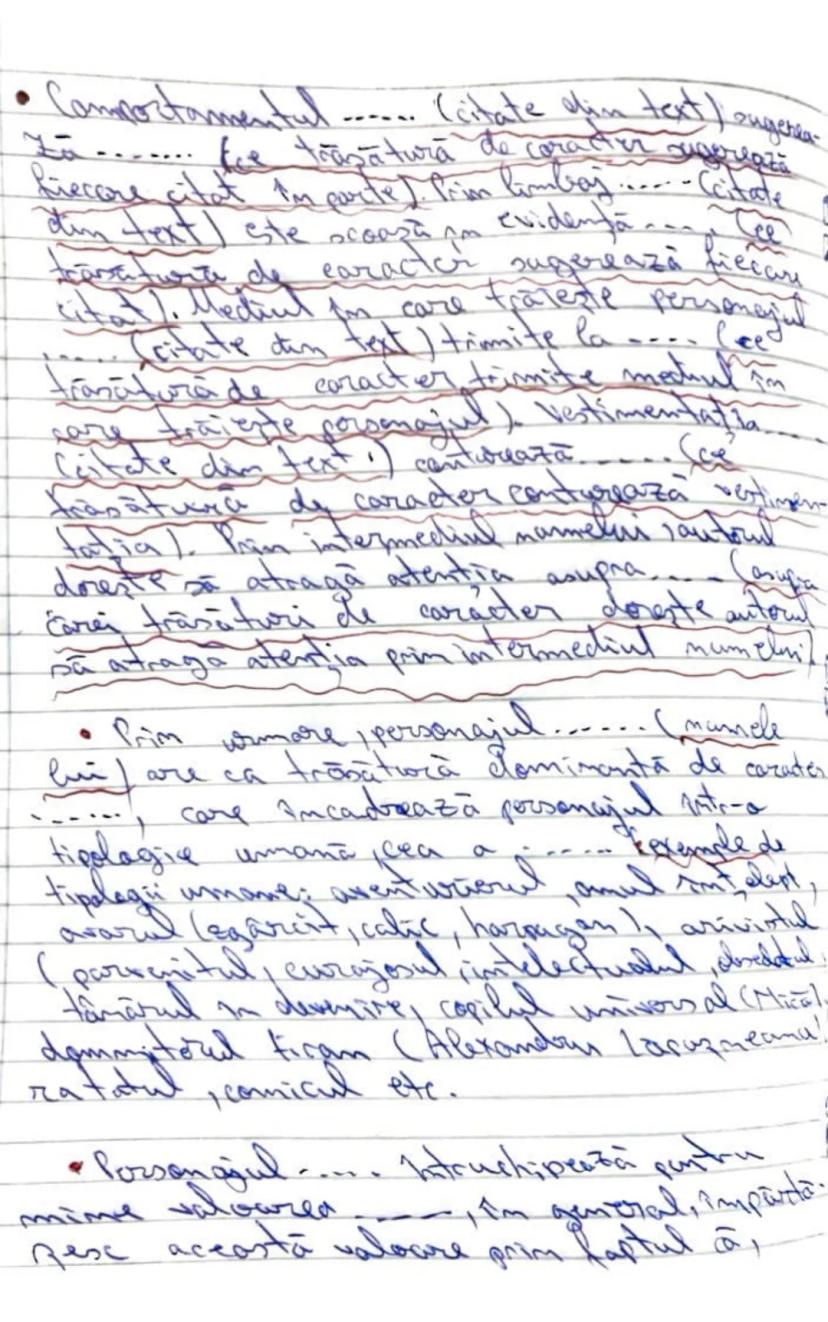 • Comportamentul ...... (citate din text) sugerea-
ză ....... (ce trăsătură de caracter sugerează
fiecare citat în parte). Prin limbaj ..... (citate
din text) este scoasă în evidență .... (ce
trăsătură de caracter sugerează fiecare
citat). Mediul în care trăiește personajul
..... (citate din text) trimite la .... (ce
trăsătură de caracter trimite mediul în
care trăiește personajul). Vestimentația ....
(citate din text) conturează ...... (ce
trăsătură de caracter conturează vestimen-
tația). Prin intermediul numelui, autorul
dorește să atragă atenția asupra .... (asupra
cărei trăsături de caracter dorește autorul
să atragă atenția prin intermediul numelui)
• Prin urmare, personajul ...... (numele
lui) are ca trăsătură dominantă de caracter
......, care încadrează personajul într-o
tipologie umană, cea a ...... (exemple de
tipologii umane: aventurierul, omul înțelept,
avarul (zgârcit, calic, harpagon), arivistul
(parvenitul, curajosul, intelectualul,
tânărul în devenire, copilul universal (Nică),
domnitorul tiran (Alexandru Lăpușneanu)
ratatul, comicul etc.
• Personajul ..... întruchipează pentru
mine valoarea ....., în general, împărtă-
șesc această valoare prin faptul că,